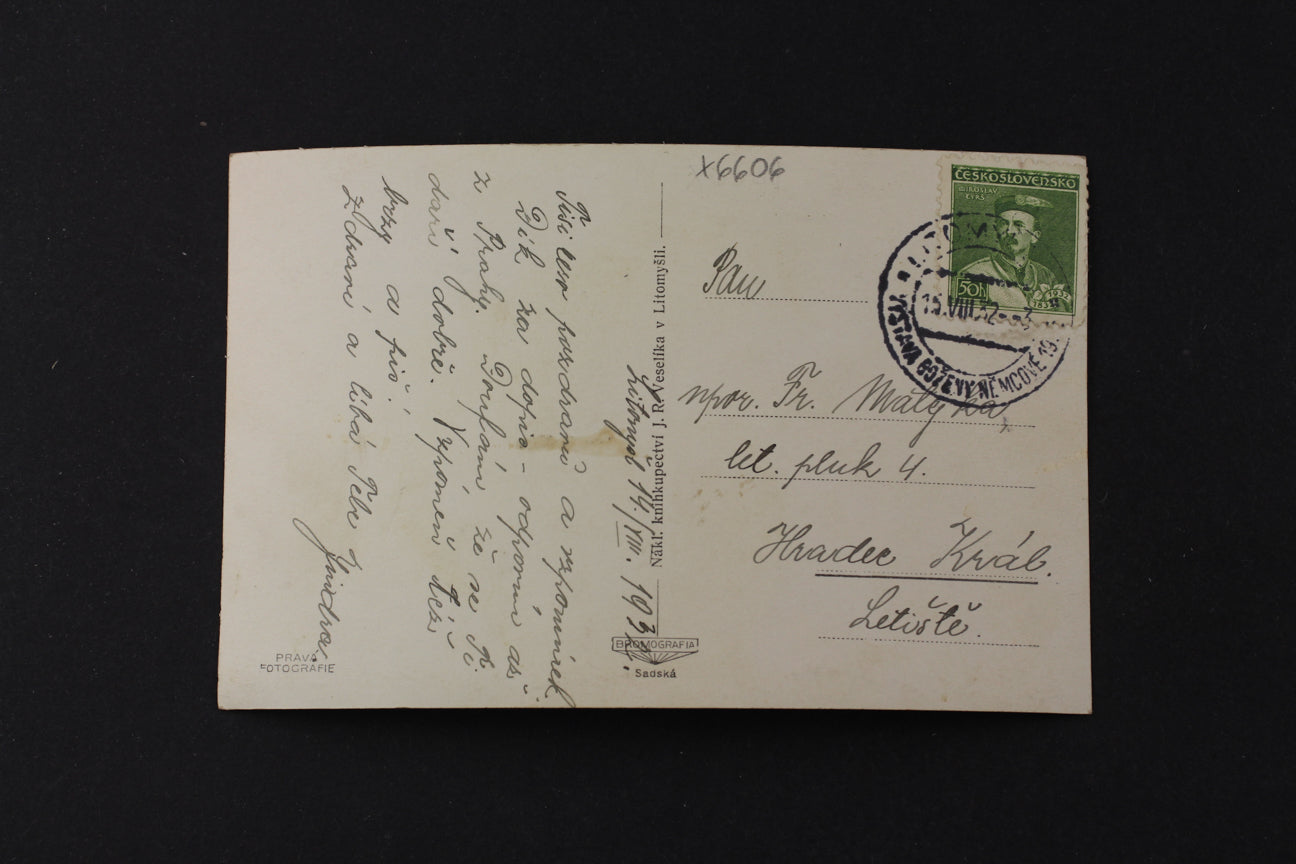 x6606
ČESKOSLOVENSKO
MIROSLAV
TYRŠ
50h
1832
1932
LITOMYŠL
15.VIII.32
VÝSTAVA BOŽENY NĚMCOVÉ 19
Pan
npor. Fr. Matyka,
let. pluk 4.
Hradec Král.
Letiště.
Nákl. knihkupectví J. R. Veselíka v Litomyšli.
BROMOGRAFIA
Sadská
Litomyšl 14./VIII. 1932.
Tisíceré pozdravů a vzpomínek
Dík za dopis – odpovím až
z Prahy. Doufám že se Ti
daří dobře. Vzpomeň též
brzy a piš!
Zdraví a líbá Tebe
Jindra
PRAVÁ
FOTOGRAFIE